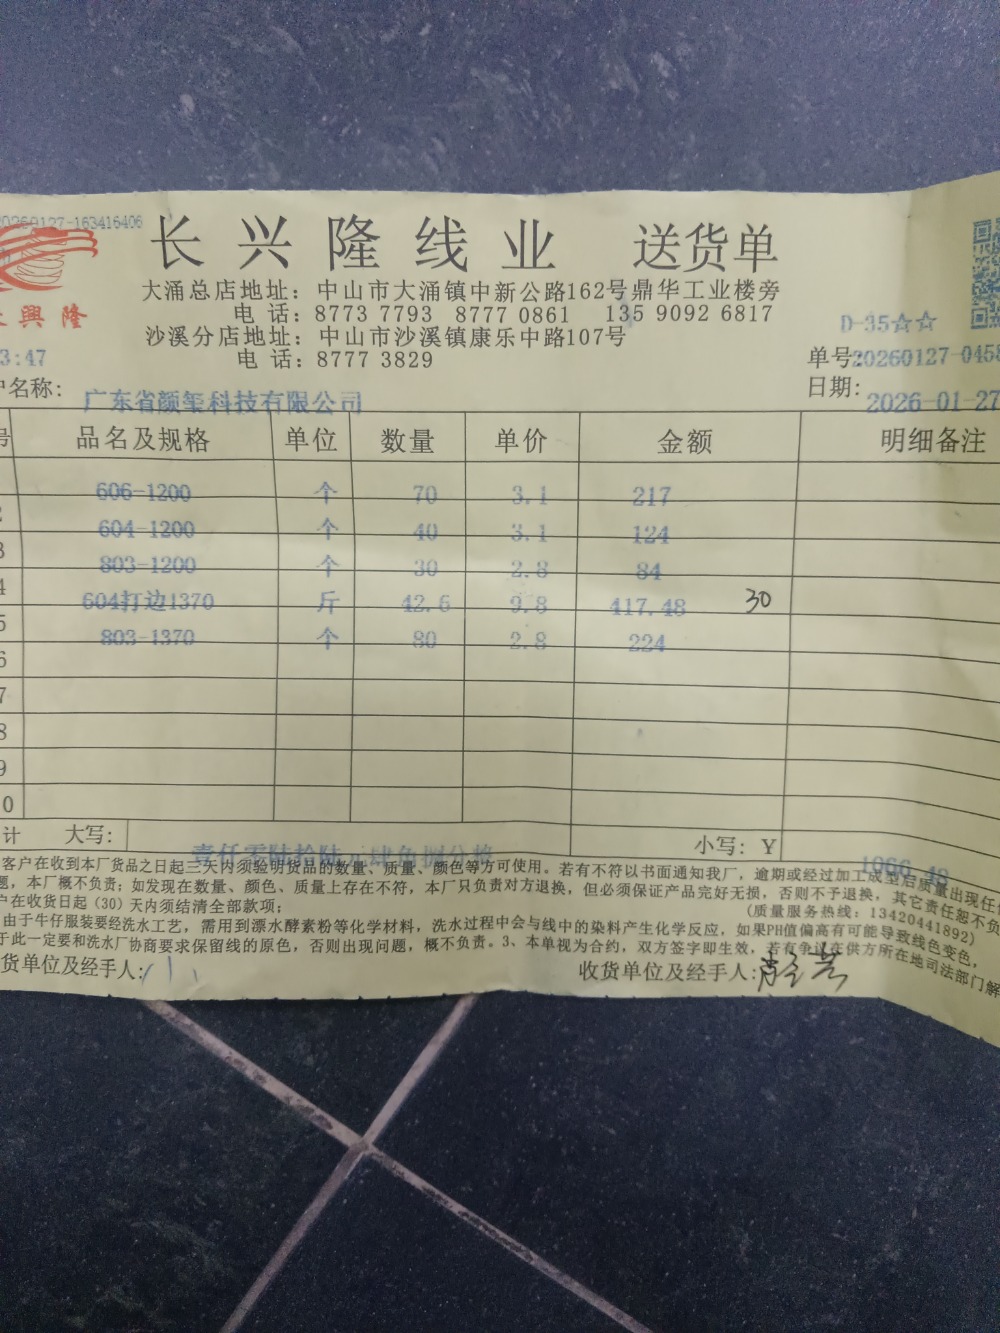 20260127-163416406
长兴隆线业 送货单
大涌总店地址：中山市大涌镇中新公路162号鼎华工业楼旁
电 话：8773 7793 8777 0861 135 9092 6817
興隆
沙溪分店地址：中山市沙溪镇康乐中路107号
D-35☆☆
电 话：8777 3829
3:47
单号:20260127-0458
户名称: 广东省颜玺科技有限公司
日期: 2026-01-27
号 品名及规格 单位 数量 单价 金额 明细备注
606-1200 个 70 3.1 217
2 604-1200 个 40 3.1 124
3 803-1200 个 30 2.8 84
4 604打边1370 斤 42.6 9.8 417.48 30
5 803-1370 个 80 2.8 224
6
7
8
9
0
计 大写: 壹仟零陆拾陆元肆角捌分整 小写: Y 1066.48
客户在收到本厂货品之日起三天内须验明货品的数量、质量、颜色等方可使用。若有不符以书面通知我厂，逾期或经过加工成型后质量出现任何
题，本厂概不负责；如发现在数量、颜色、质量上存在不符，本厂只负责对方退换，但必须保证产品完好无损，否则不予退换，其它责任恕不负
户在收货日起（30）天内须结清全部款项； (质量服务热线：13420441892)
由于牛仔服装要经洗水工艺，需用到漂水酵素粉等化学材料，洗水过程中会与线中的染料产生化学反应，如果PH值偏高有可能导致线色变色，
于此一定要和洗水厂协商要求保留线的原色，否则出现问题，概不负责。3、本单视为合约，双方签字即生效，若有争议在供方所在地司法部门解
货单位及经手人: 收货单位及经手人: